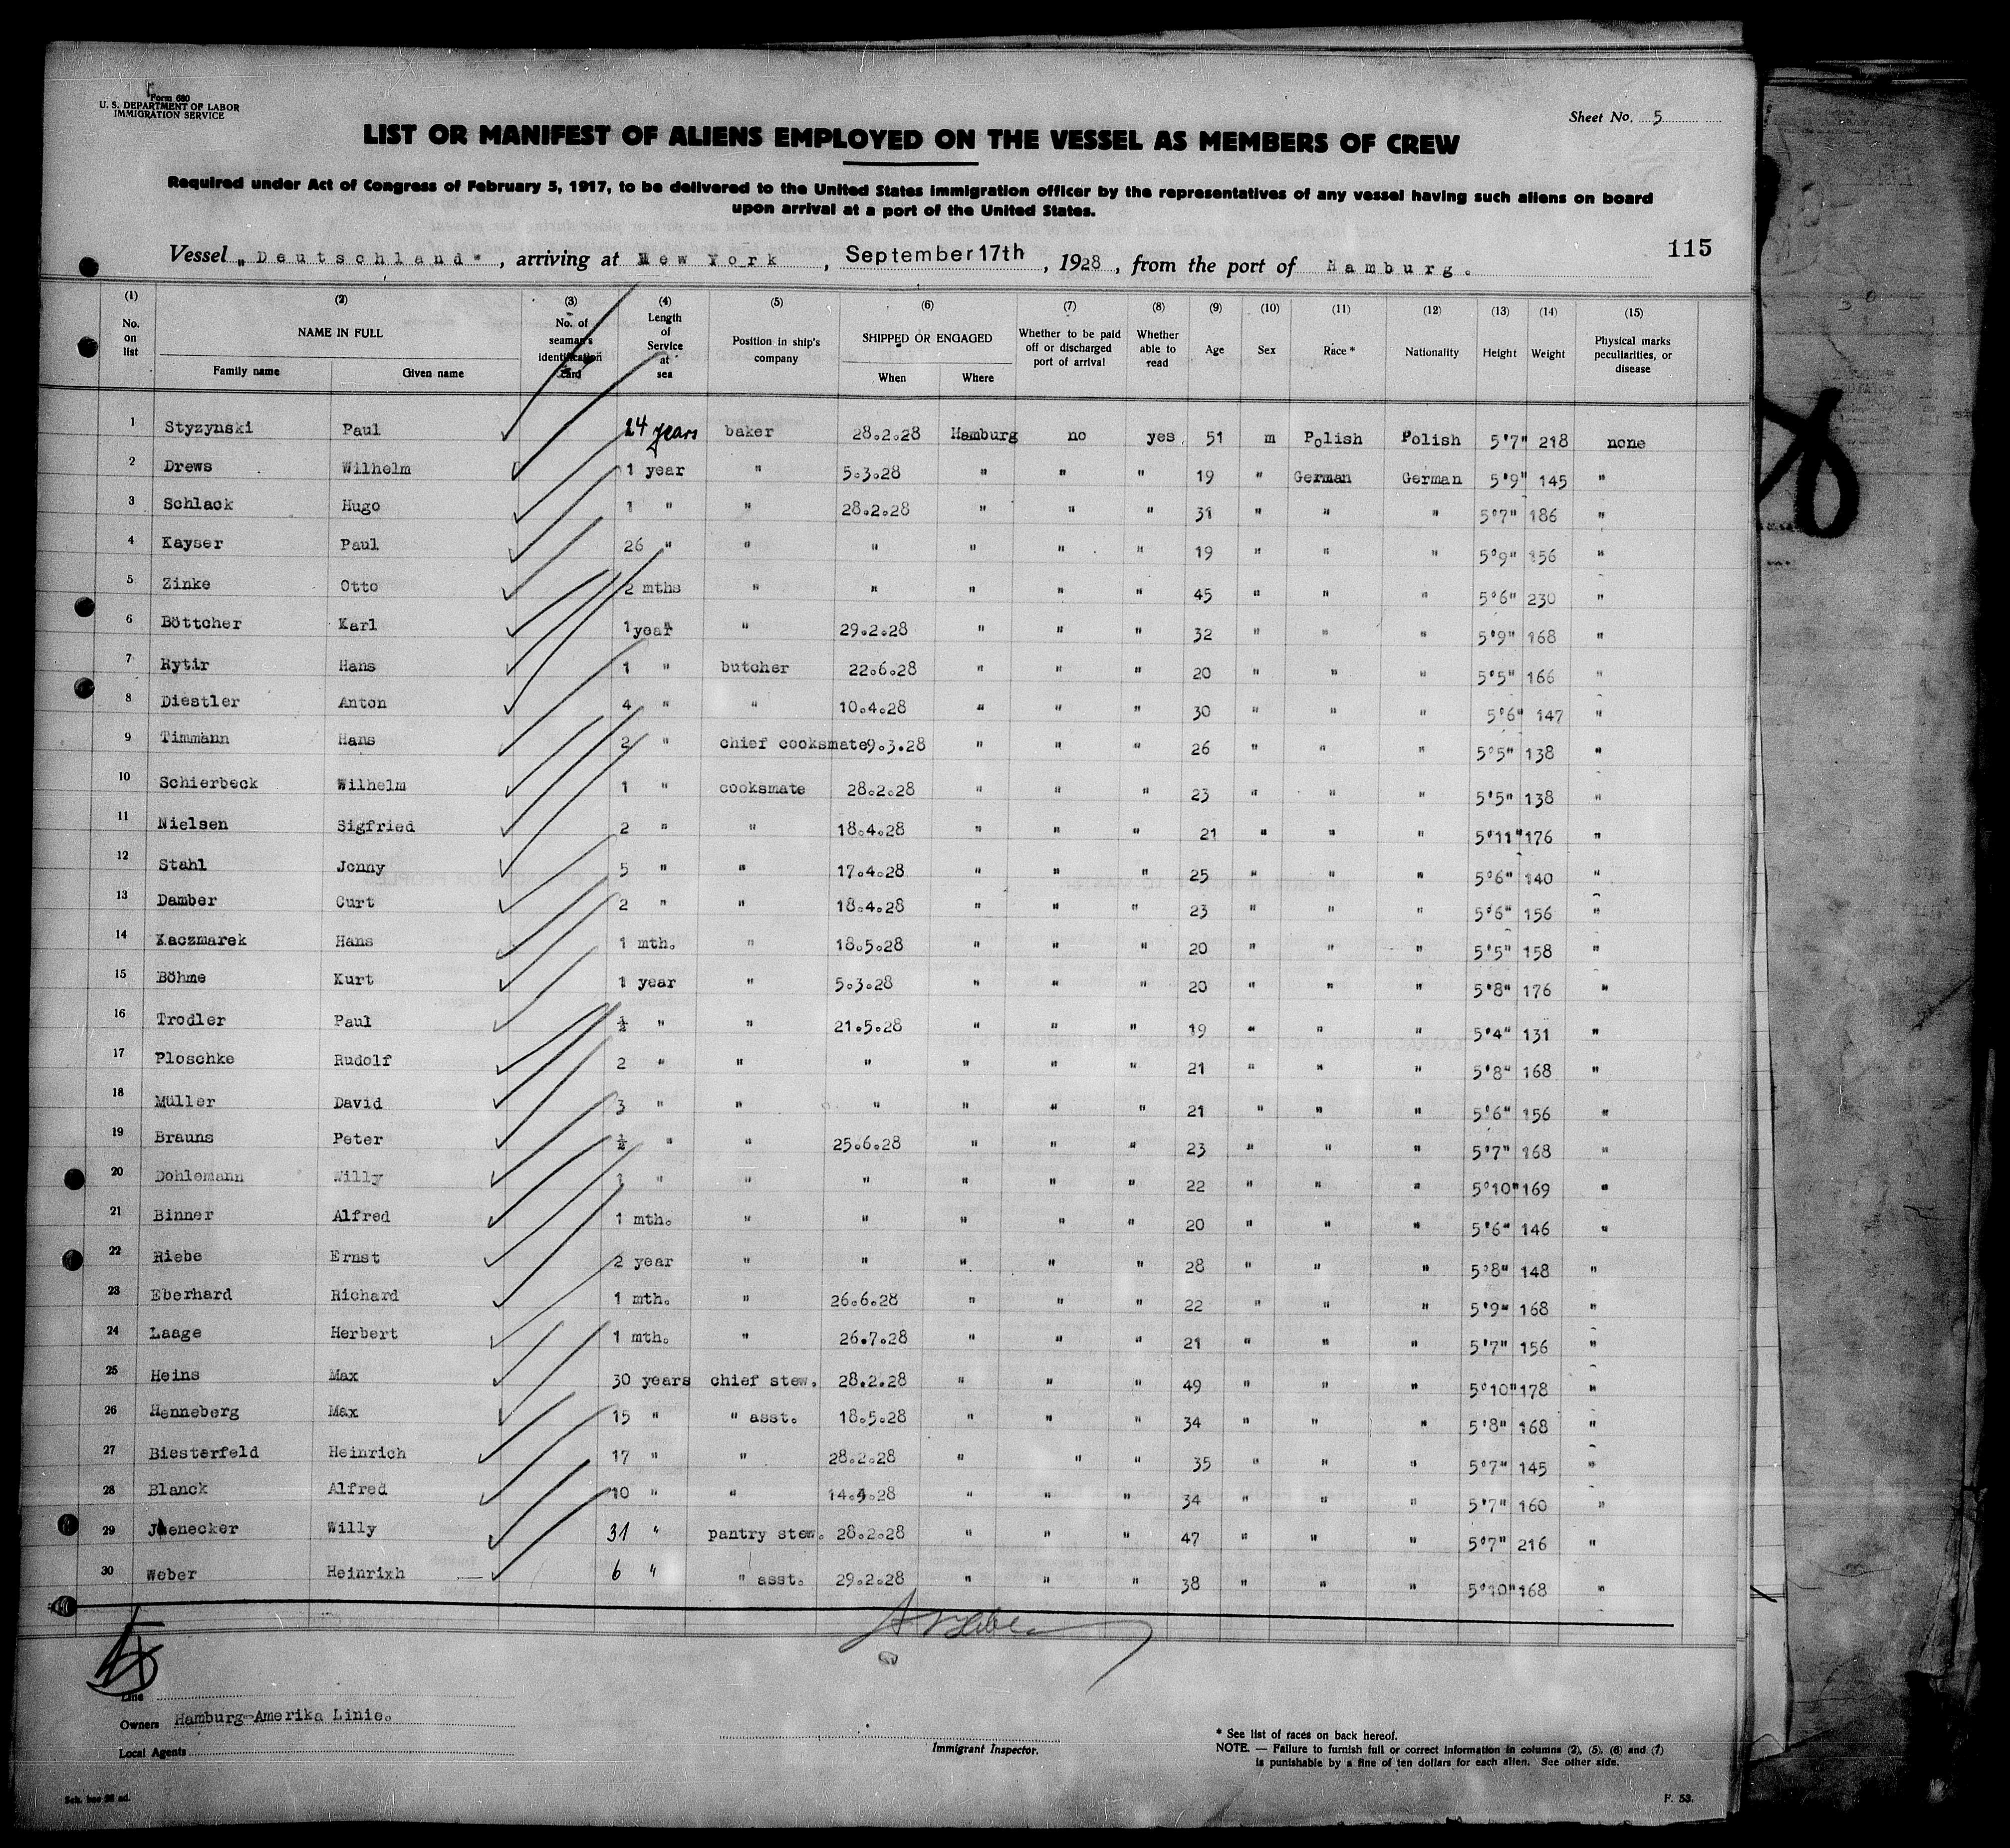 Form 680
U. S. DEPARTMENT OF LABOR
IMMIGRATION SERVICE
Sheet No. 5
LIST OR MANIFEST OF ALIENS EMPLOYED ON THE VESSEL AS MEMBERS OF CREW
Required under Act of Congress of February 5, 1917, to be delivered to the United States immigration officer by the representatives of any vessel having such aliens on board
upon arrival at a port of the United States.
115
Vessel "Deutschland", arriving at New York, September 17th, 1928, from the port of Hamburg.
(1) (2) (3) (4) (5) (6) (7) (8) (9) (10) (11) (12) (13) (14) (15)
No. on list NAME IN FULL No. of seaman's identification card Length of Service at sea Position in ship's company SHIPPED OR ENGAGED Whether to be paid off or discharged port of arrival Whether able to read Age Sex Race * Nationality Height Weight Physical marks peculiarities, or disease
Family name Given name When Where
1 Styzynski Paul 24 years baker 28.2.28 Hamburg no yes 51 m Polish Polish 5'7" 218 none
2 Drews Wilhelm 1 year " 5.3.28 " " " 19 " German German 5'9" 145 "
3 Schlack Hugo 1 " " 28.2.28 " " " 31 " " " 5'7" 186 "
4 Kayser Paul 26 " " " " " " 19 " " " 5'9" 156 "
5 Zinke Otto 2 mths " " " " " 45 " " " 5'6" 230 "
6 Böttcher Karl 1 year " 29.2.28 " " " 32 " " " 5'9" 168 "
7 Rytir Hans 1 " butcher 22.6.28 " " " 20 " " " 5'5" 166 "
8 Diestler Anton 4 " " 10.4.28 " " " 30 " " " 5'6" 147 "
9 Timmann Hans 2 " chief cooksmate 9.3.28 " " " 26 " " " 5'5" 138 "
10 Schierbeck Wilhelm 1 " cooksmate 28.2.28 " " " 23 " " " 5'5" 138 "
11 Nielsen Sigfried 2 " " 18.4.28 " " " 21 " " " 5'11" 176 "
12 Stahl Jonny 5 " " 17.4.28 " " " 25 " " " 5'6" 140 "
13 Damber Curt 2 " " 18.4.28 " " " 23 " " " 5'6" 156 "
14 Kaczmarek Hans 1 mth. " 18.5.28 " " " 20 " " " 5'5" 158 "
15 Böhme Kurt 1 year " 5.3.28 " " " 20 " " " 5'8" 176 "
16 Trodler Paul ½ " " 21.5.28 " " " 19 " " " 5'4" 131 "
17 Ploschke Rudolf 2 " " " " " " 21 " " " 5'8" 168 "
18 Müller David 3 " " " " " " 21 " " " 5'6" 156 "
19 Brauns Peter ½ " " 25.6.28 " " " 23 " " " 5'7" 168 "
20 Dohlemann Willy 1 " " " " " " 22 " " " 5'10" 169 "
21 Binner Alfred 1 mth. " " " " " 20 " " " 5'6" 146 "
22 Riebe Ernst 2 year " " " " " 28 " " " 5'8" 148 "
23 Eberhard Richard 1 mth. " 26.6.28 " " " 22 " " " 5'9" 168 "
24 Laage Herbert 1 mth. " 26.7.28 " " " 21 " " " 5'7" 156 "
25 Heins Max 30 years chief stew. 28.2.28 " " " 49 " " " 5'10" 178 "
26 Henneberg Max 15 " " asst. 18.5.28 " " " 34 " " " 5'8" 168 "
27 Biesterfeld Heinrich 17 " " 28.2.28 " " " 35 " " " 5'7" 145 "
28 Blanck Alfred 10 " " 14.4.28 " " " 34 " " " 5'7" 160 "
29 Jaenecker Willy 31 " pantry stew. 28.2.28 " " " 47 " " " 5'7" 216 "
30 Weber Heinrixh 6 " " asst. 29.2.28 " " " 38 " " " 5'10" 168 "
Line
Owners Hamburg-Amerika Linie.
Local Agents
Immigrant Inspector.
* See list of races on back hereof.
NOTE. — Failure to furnish full or correct information in columns (2), (5), (6) and (7)
is punishable by a fine of ten dollars for each alien. See other side.
F. 53.